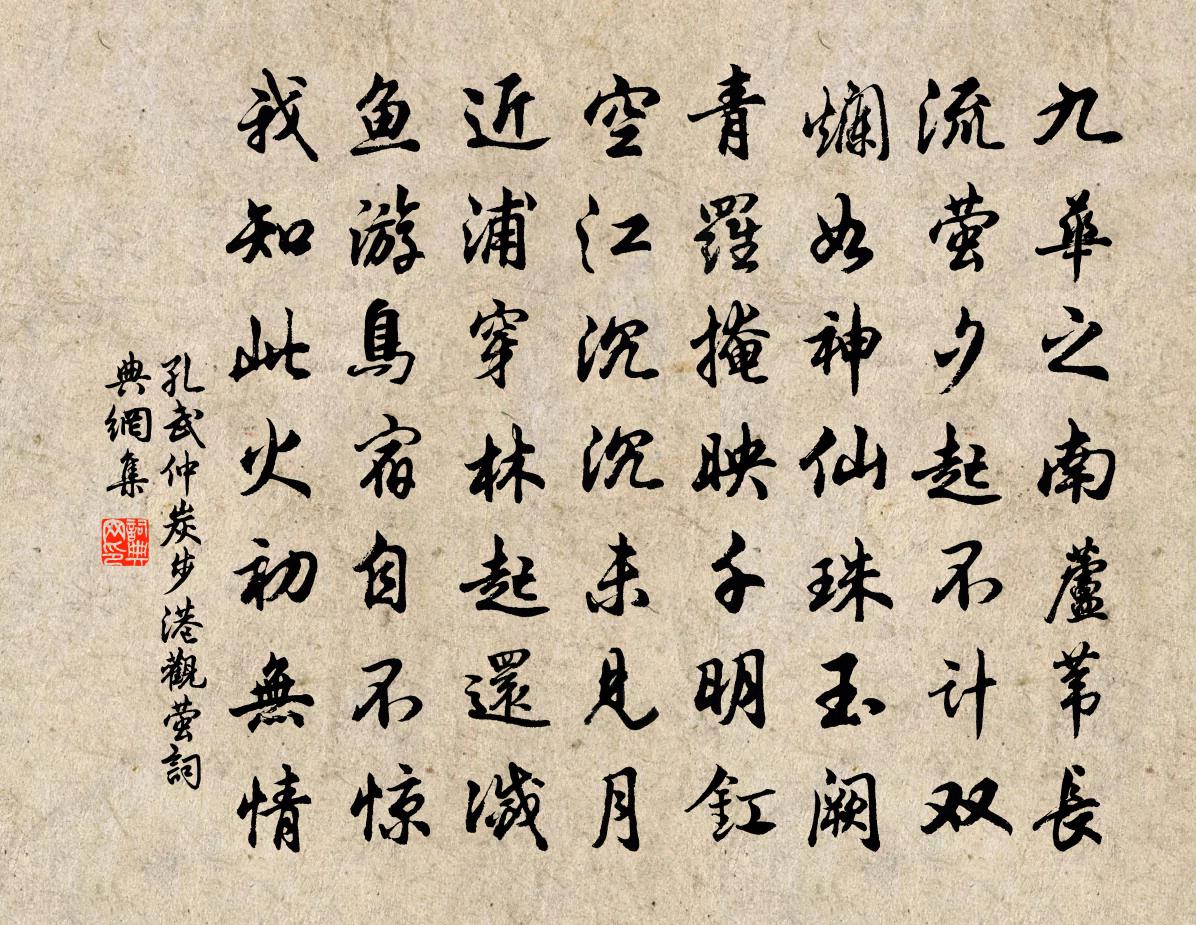 九華之南蘆葦長
流萤夕起不计双
爛如神仙珠玉闕
青羅掩映千明釭
空江沉沉未見月
近浦穿林起還滅
鱼游鳥宿自不惊
我知此火初無情
孔武仲炭步港觀萤詞
典網集
詞典网印